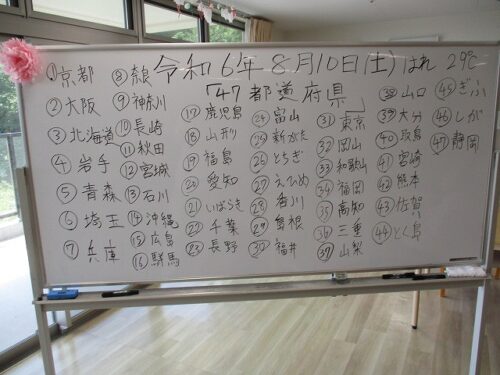 令和6年8月10日(土)はれ 29℃
「47都道府県」
①京都
②大阪
③北海道
④岩手
⑤青森
⑥埼玉
⑦兵庫
⑧奈良
⑨神奈川
⑩長崎
⑪秋田
⑫宮城
⑬石川
⑭沖縄
⑮広島
⑯群馬
⑰鹿児島
⑱山形
⑲福島
⑳愛知
㉑いばらき
㉒千葉
㉓長野
㉔富山
㉕新がた
㉖とちぎ
㉗えひめ
㉘香川
㉙島根
㉚福井
㉛東京
㉜岡山
㉝和歌山
㉞福岡
㉟高知
㊱三重
㊲山梨
㊳山口
㊴大分
㊵鳥取
㊶宮崎
㊷熊本
㊸佐賀
㊹とく島
㊺ぎふ
㊻しが
㊼静岡